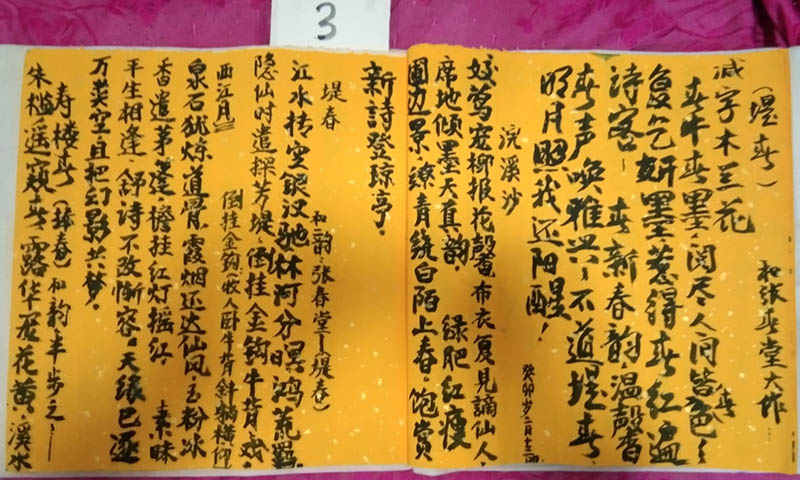 3
(堤春) 和张春堂大作
减字木兰花
春牛春墨，阅尽人间皆春色
复乞妍墨，惹得春红遍
诗客 春新春韵，温馨香
春声唤雅兴，不道堤春，
明月照我还阳醒！
癸卯岁二月十三
浣溪沙
姣莺宠柳报花馨，布衣复见谪仙人，
席地倾墨天真韵。绿肥红瘦
圃边景，缭青绕白陌上春。饱赏
新詩登琼亭。
堤春 和韵·张春堂(堤春)
江水抟空银汉驰，林河分暝鸿荒羁
隐仙时遣探芳堤，倒挂金钩牛背戏。
倒挂金钩牧人卧牛背斜躺横仰
西江月
泉石犹惊道骨，霞烟还达仙风，玉粉冰
香遣茅蓬，檐挂红灯摇红。 素昧
平生相逢，舒诗不改惭容。天缘已逐
万类空，且把幻影共梦。
寿楼春(捧春) 和韵半步之
朱槛遥窥春，露华眉花黄。溪水